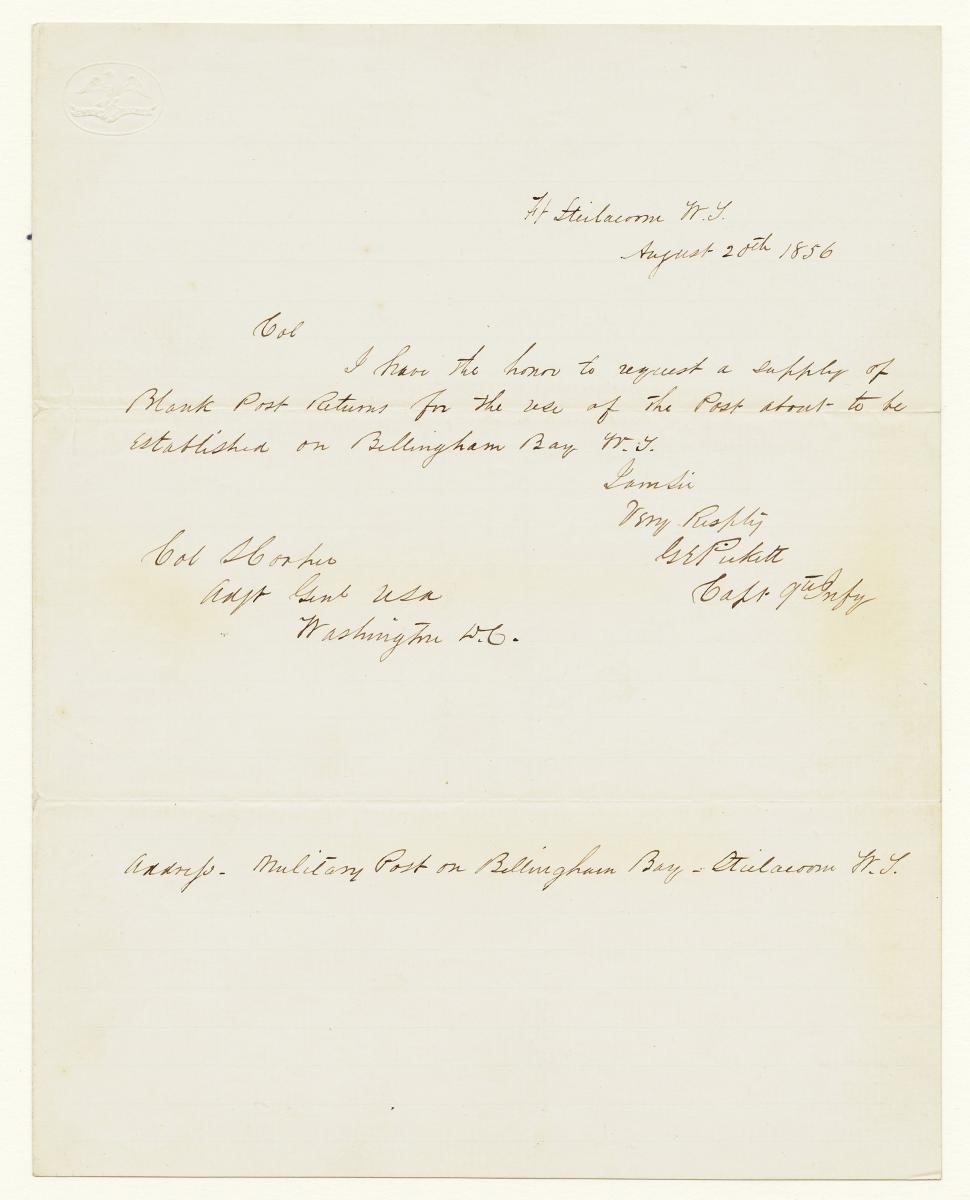 Ft Steilacoom W.T.
August 20th 1856
Col
I have the honor to request a supply of
Blank Post Returns for the use of the Post about to be
Established on Bellingham Bay W.T.
I am Sir
Very Resptly
Col S Cooper
GE Pickett
Adjt Genl USA
Capt 9th Infy
Washington D.C.
Address - Military Post on Bellingham Bay - Steilacoom W.T.